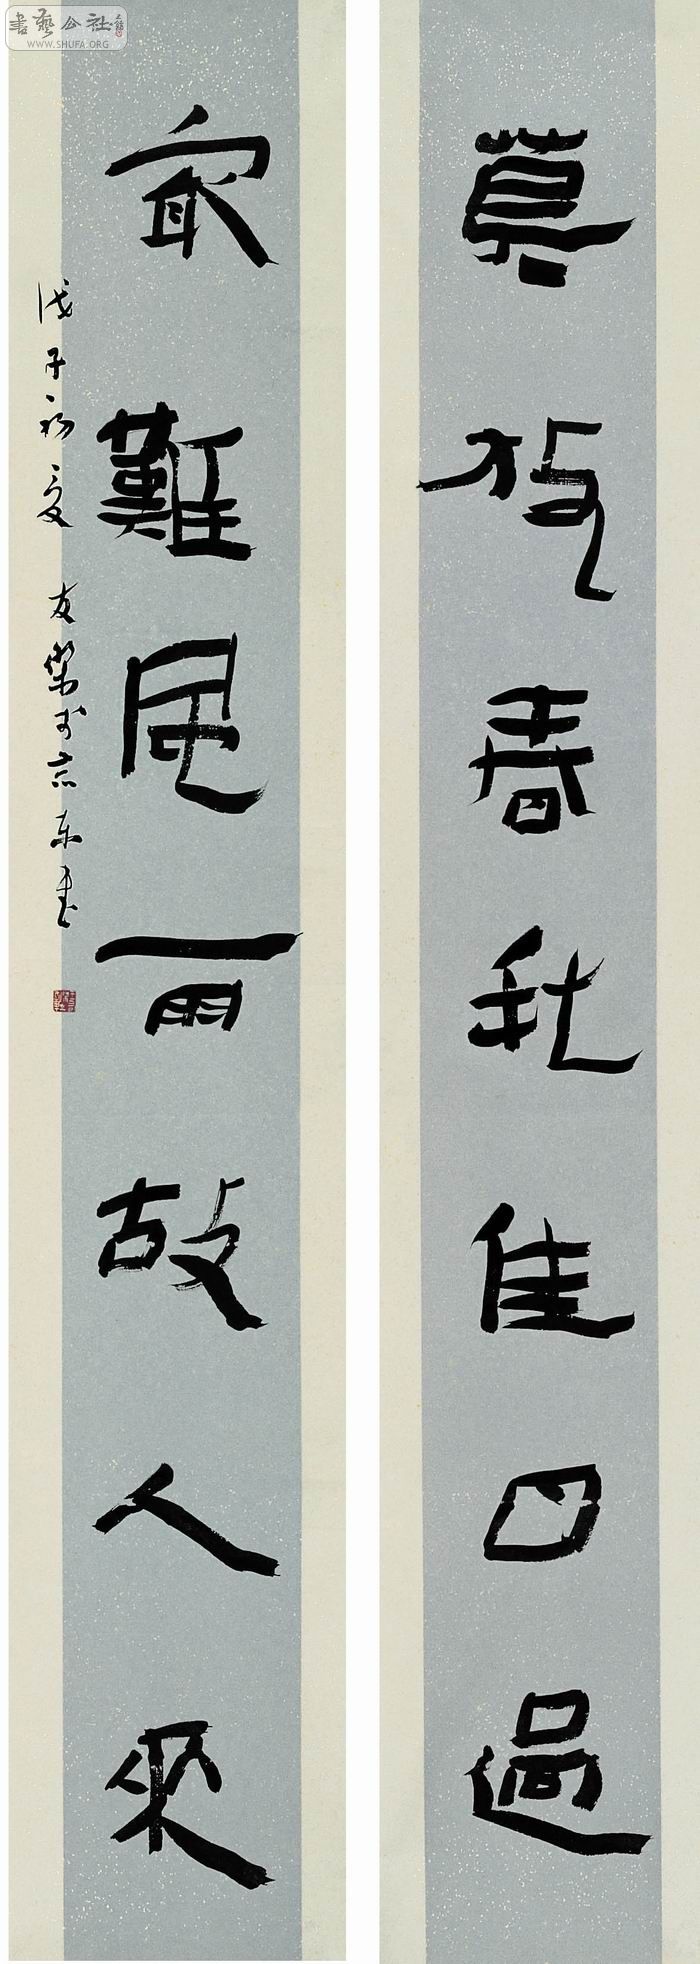 莫放春秋佳日過
最難風雨故人來
戊子初夏 友樂於京東書
書藝公社
WWW.SHUFA.ORG